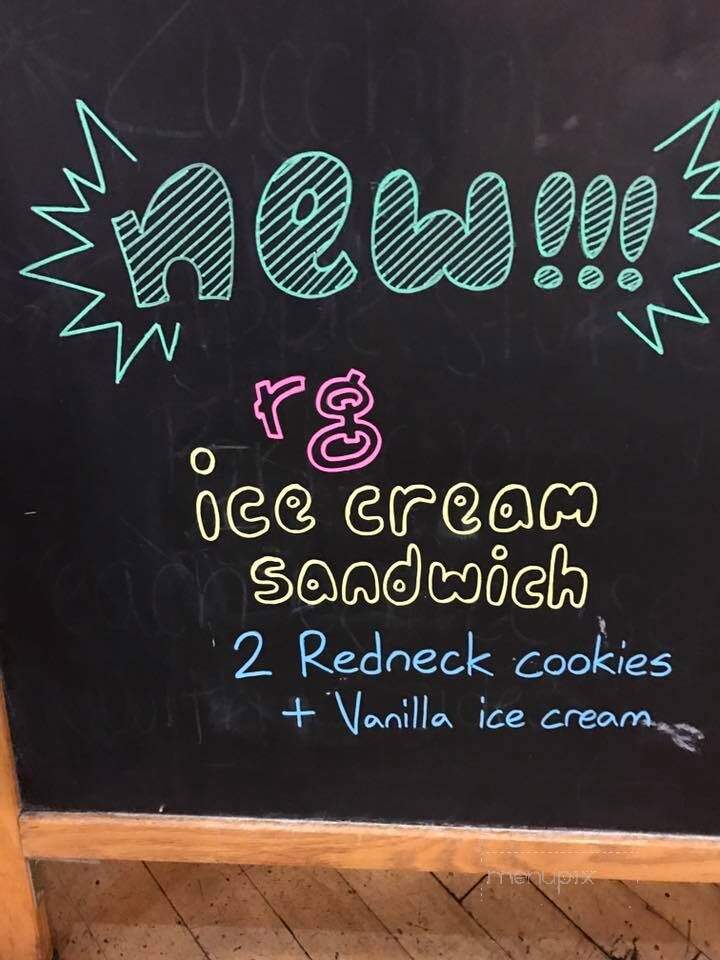 new!!!
rg
ice cream
sandwich
2 Redneck cookies
+ Vanilla ice cream
menupix